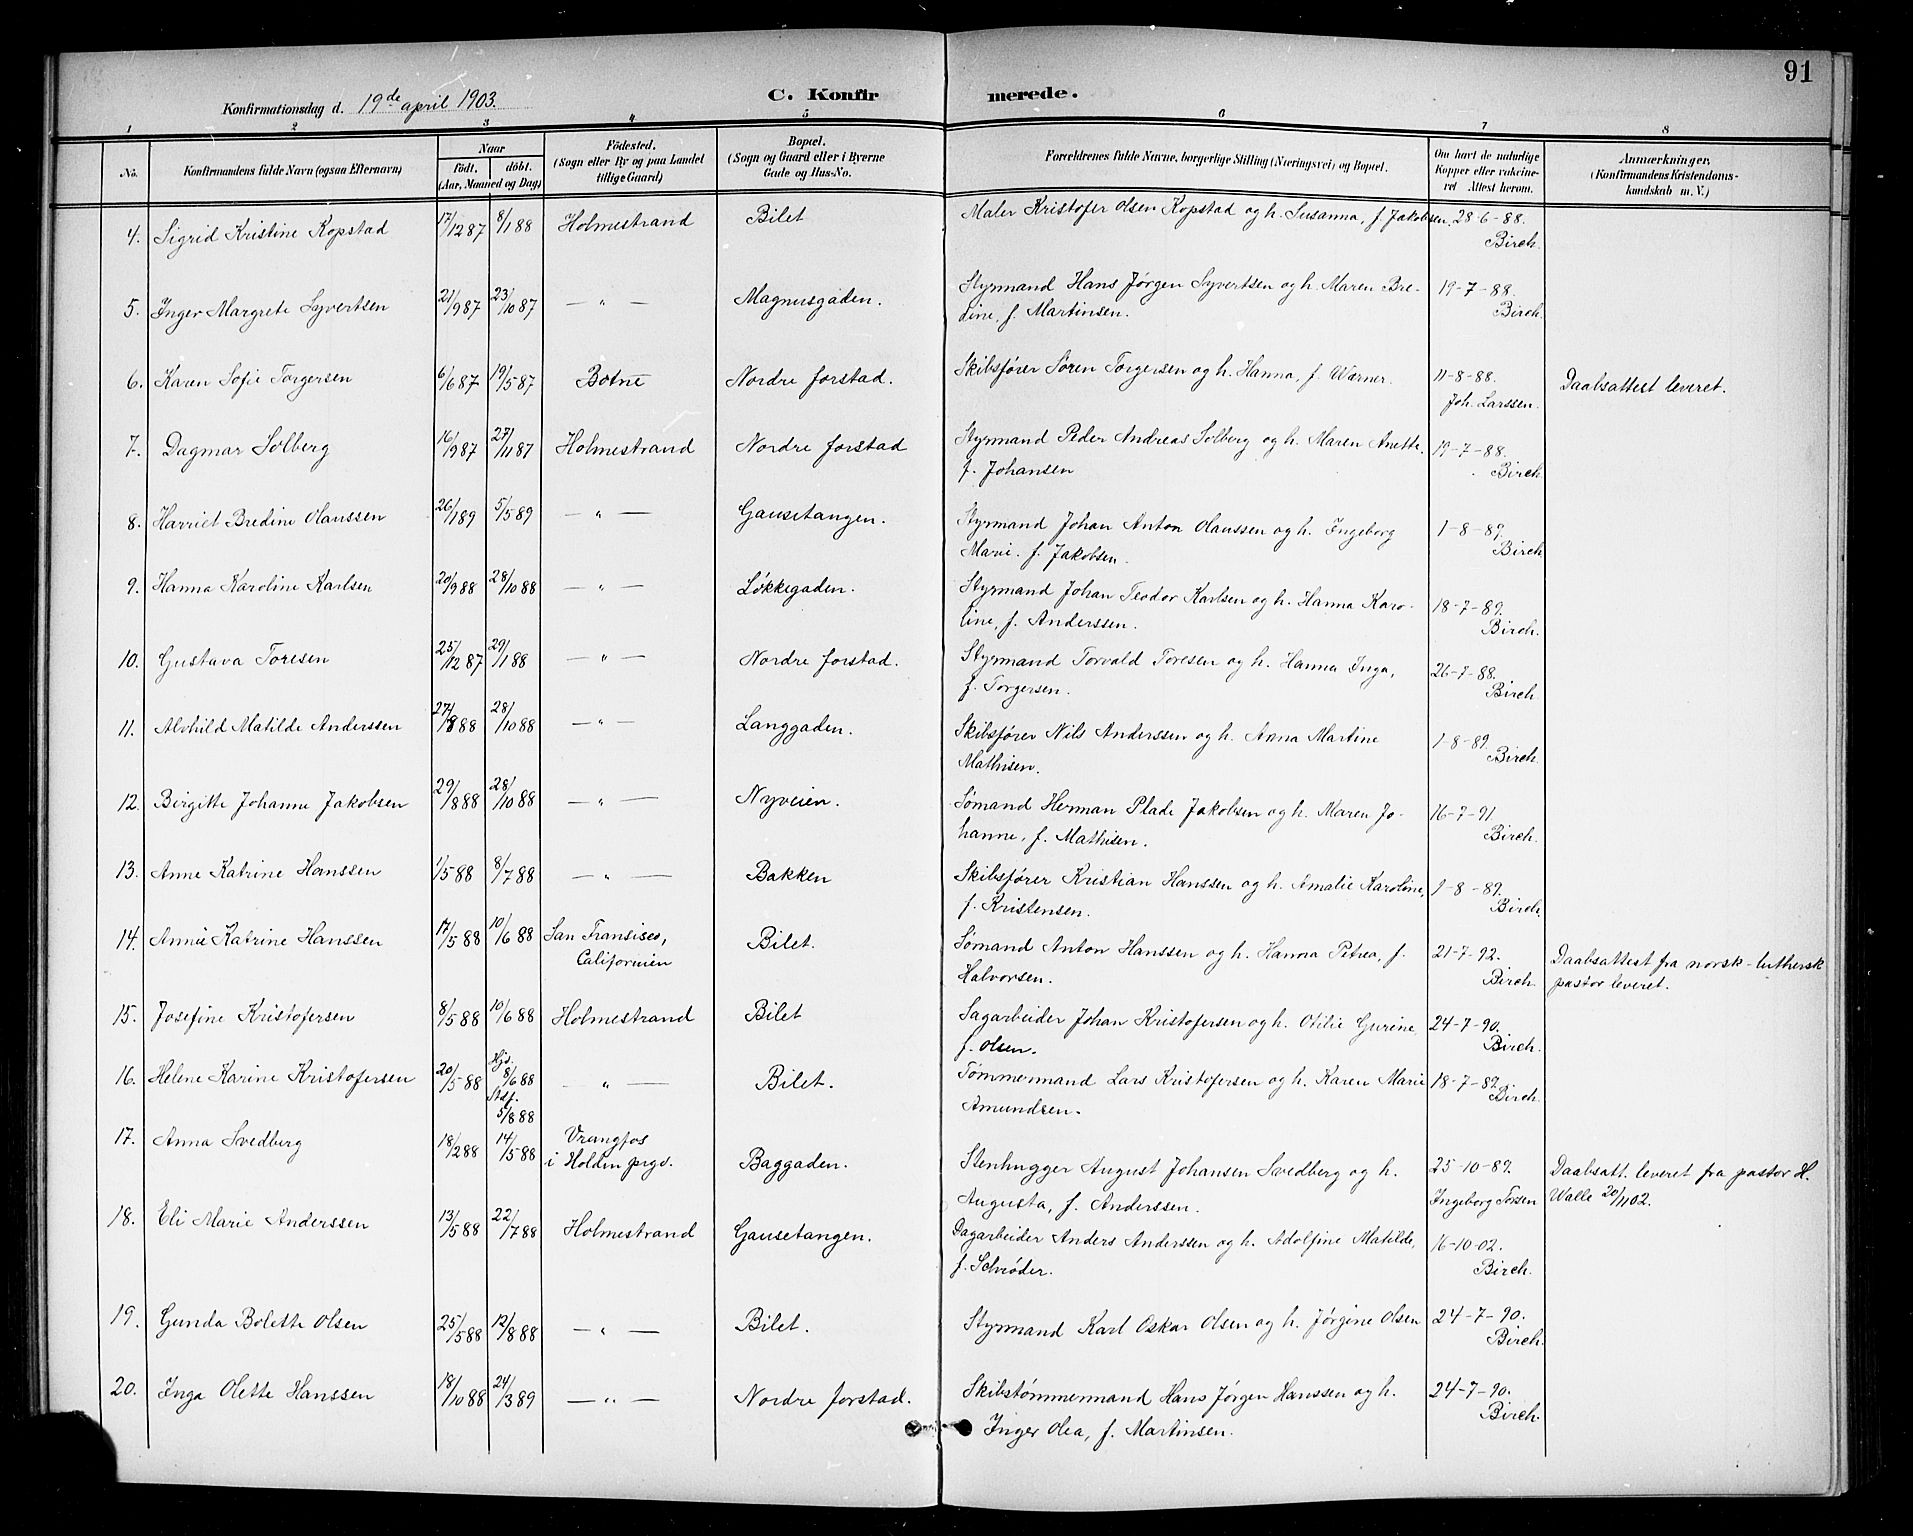 91
Konfirmationsdag d. 19de april 1903.
C. Konfirmerede.
1 2 3 4 5 6 7 8
No.
Konfirmandens fulde Navn (ogsaa Efternavn)
Naar
født. døbt.
(Aar, Maaned og Dag)
Födested.
(Sogn eller By og paa Landet
tillige Gaard)
Bopæl.
(Sogn og Gaard eller i Byerne
Gade og Hus-No.
Forældrenes fulde Navne, borgerlige Stilling (Næringsvei) og Bopæl.
Om havt de naturlige
Kopper eller vakcine-
ret Attest herom.
Anmærkninger,
(Konfirmandens Kristendoms-
kundskab m. V.)
4. Sigrid Kristine Kopstad 17/12 87 8/1 88 Holmestrand Bilet Maler Kristofer Olsen Kopstad og h. Susanna, f. Jakobsen. 28-6-88.
Birch.
5. Inger Margrete Syvertsen 21/9 87 23/10 87 — " — Magnusgaden. Styrmand Hans Jørgen Syvertsen og h. Maren Bre- 19-7-88.
dine, f. Martinsen. Birch.
6. Karen Sofie Torgersen 6/6 87 19/5 87 Botne Nordre forstad. Skibsfører Søren Torgersen og h. Hanna, f. Warner. 11-8-88. Daabsattest leveret.
Joh. Larssen.
7. Dagmar Solberg 16/9 87 27/11 87 Holmestrand Nordre forstad Styrmand Peder Andreas Solberg og h. Maren Anette, 19-7-88.
f. Johansen Birch
8. Harriet Bredine Olaussen 26/1 89 5/5 89 — " — Gausetangen. Styrmand Johan Anton Olaussen og h. Ingeborg 1-8-89.
Marie. f. Jakobsen. Birch
9. Hanna Karoline Karlsen 20/9 88 28/10 88 — " — Løkkegaden. Styrmand Johan Teodor Karlsen og h. Hanna Karo- 18-7-89.
line, f. Anderssen. Birch.
10. Gustava Toresen 25/12 87 29/1 88 — " — Nordre forstad. Styrmand Torvald Toresen og h. Hanna Inga, 26-7-88.
f. Torgersen. Birch.
11. Alvhild Matilde Anderssen 27/8 88 28/10 88 — " — Langgaden. Skibsfører Nils Anderssen og h. Anna Martine 1-8-89.
Mathisen. Birch.
12. Birgitte Johanne Jakobsen 29/8 88 28/10 88 — " — Nyveien. Sømand Herman Plade Jakobsen og h. Maren Jo- 16-7-91.
hanne, f. Mathisen. Birch.
13. Anne Katrine Hanssen 1/5 88 8/7 88 — " — Bakken Skibsfører Kristian Hanssen og h. Amalie Karoline, 1-8-89.
f. Kristensen. Birch.
14. Annie Katrine Hanssen 17/5 88 10/6 88 San Fransisco, Bilet. Sømand Anton Hanssen og h. Hanna Petrea, f. 21-7-92. Daabsattest fra norsk-luthersk
Californien Halvorsen. Birch. pastor leveret.
15. Josefine Kristofersen 8/5 88 10/6 88 Holmestrand Bilet Sagarbeider Johan Kristofersen og h. Otilie Gurine 24-7-90.
f. Olsen. Birch.
16. Helene Karine Kristofersen 20/5 88 Hjd. 8/6 88 Stdf. 5/8 88 — " — Bilet. Tømmermand Lars Kristofersen og h. Karen Marie 18-7-89.
Amundsen. Birch.
17. Anna Svedberg 18/2 88 14/5 88 Vrangfos Baggaden. Stenhugger August Johansen Svedberg og h. 25-10-89. Daabsatt. leveret fra pastor H.
i Holden prgd. Augusta, f. Anderssen. Ingeborg Torsen Walle 20/11 02.
18. Eli Marie Anderssen 13/5 88 22/7 88 Holmestrand Gausetangen. Dagarbeider Anders Anderssen og h. Adolfine Matilde, 16-10-02.
f. Schrøder. Birch.
19. Gunda Bolette Olsen 25/5 88 12/8 88 — " — Bilet. Styrmand Karl Oskar Olsen og h. Jørgine Olsen 24-7-90.
Birch.
20. Inga Olette Hanssen 18/10 88 24/3 89 — " — Nordre forstad. Skibstømmermand Hans Jørgen Hanssen og h. 24-7-90.
Inger Olea, f. Martinsen. Birch.